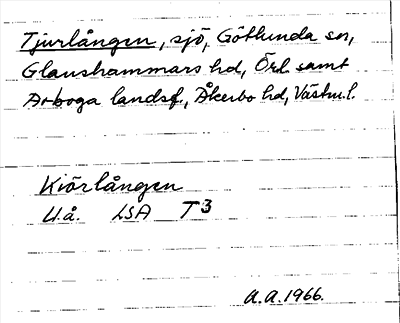 Tjurlången, sjö, Götlunda sn,
Glanshammars hd, Örl. samt
Arboga landsf., Åkerbo hd, Västm.l.
Kiörlången
U.å. LSA T3
A.A. 1966.